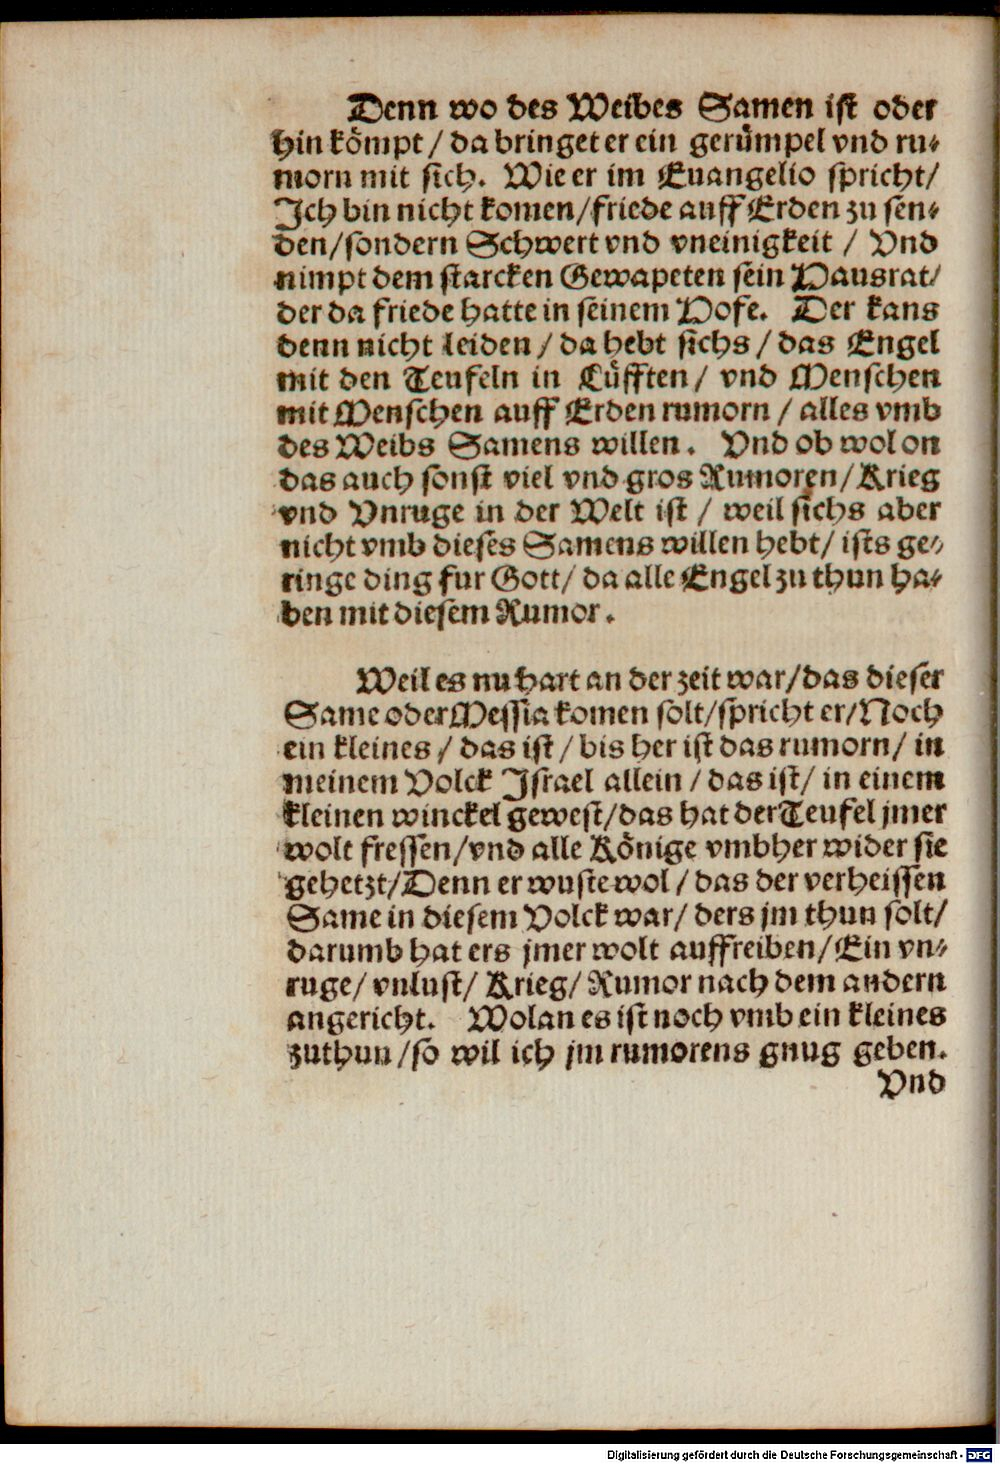 Denn wo des Weibes Samen ist oder
hin koͤmpt / da bringet er ein geruͤmpel vnd ru⸗
morn mit sich. Wie er im Euangelio spricht /
Ich bin nicht komen / friede auff Erden zu sen⸗
den / sondern Schwert vnd vneinigkeit / Vnd
nimpt dem starcken Gewapeten sein Hausrat /
der da friede hatte in seinem Hofe. Der kans
denn nicht leiden / da hebt sichs / das Engel
mit den Teufeln in Luͤfften / vnd Menschen
mit Menschen auff Erden rumorn / alles vmb
des Weibs Samens willen. Vnd ob wol on
das auch sonst viel vnd gros Rumoren / Krieg
vnd Vnruge in der Welt ist / weil sichs aber
nicht vmb dieses Samens willen hebt / ists ge⸗
ringe ding fur Gott / da alle Engel zu thun ha⸗
ben mit diesem Rumor.
Weil es nu hart an der zeit war / das dieser
Same oder Messia komen solt / spricht er / Noch
ein kleines / das ist / bis her ist das rumorn / in
meinem Volck Israel allein / das ist / in einem
kleinen winckel gewest / das hat der Teufel jmer
wolt fressen / vnd alle Koͤnige vmbher wider sie
gehetzt / Denn er wuste wol / das der verheissen
Same in diesem Volck war / ders jm thun solt /
darumb hat ers jmer wolt auffreiben / Ein vn⸗
ruge / vnlust / Krieg / Rumor nach dem andern
angericht. Wolan es ist noch vmb ein kleines
zuthun / so wil ich jm rumorens gnug geben.
Vnd
Digitalisierung gefördert durch die Deutsche Forschungsgemeinschaft - DFG